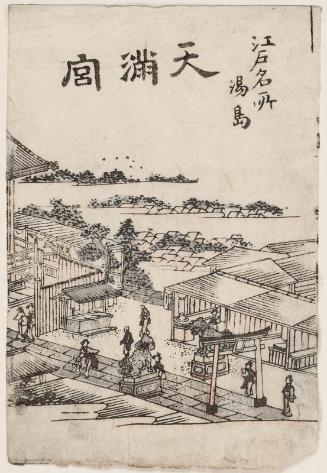 江戸名所
湯島
天満宮